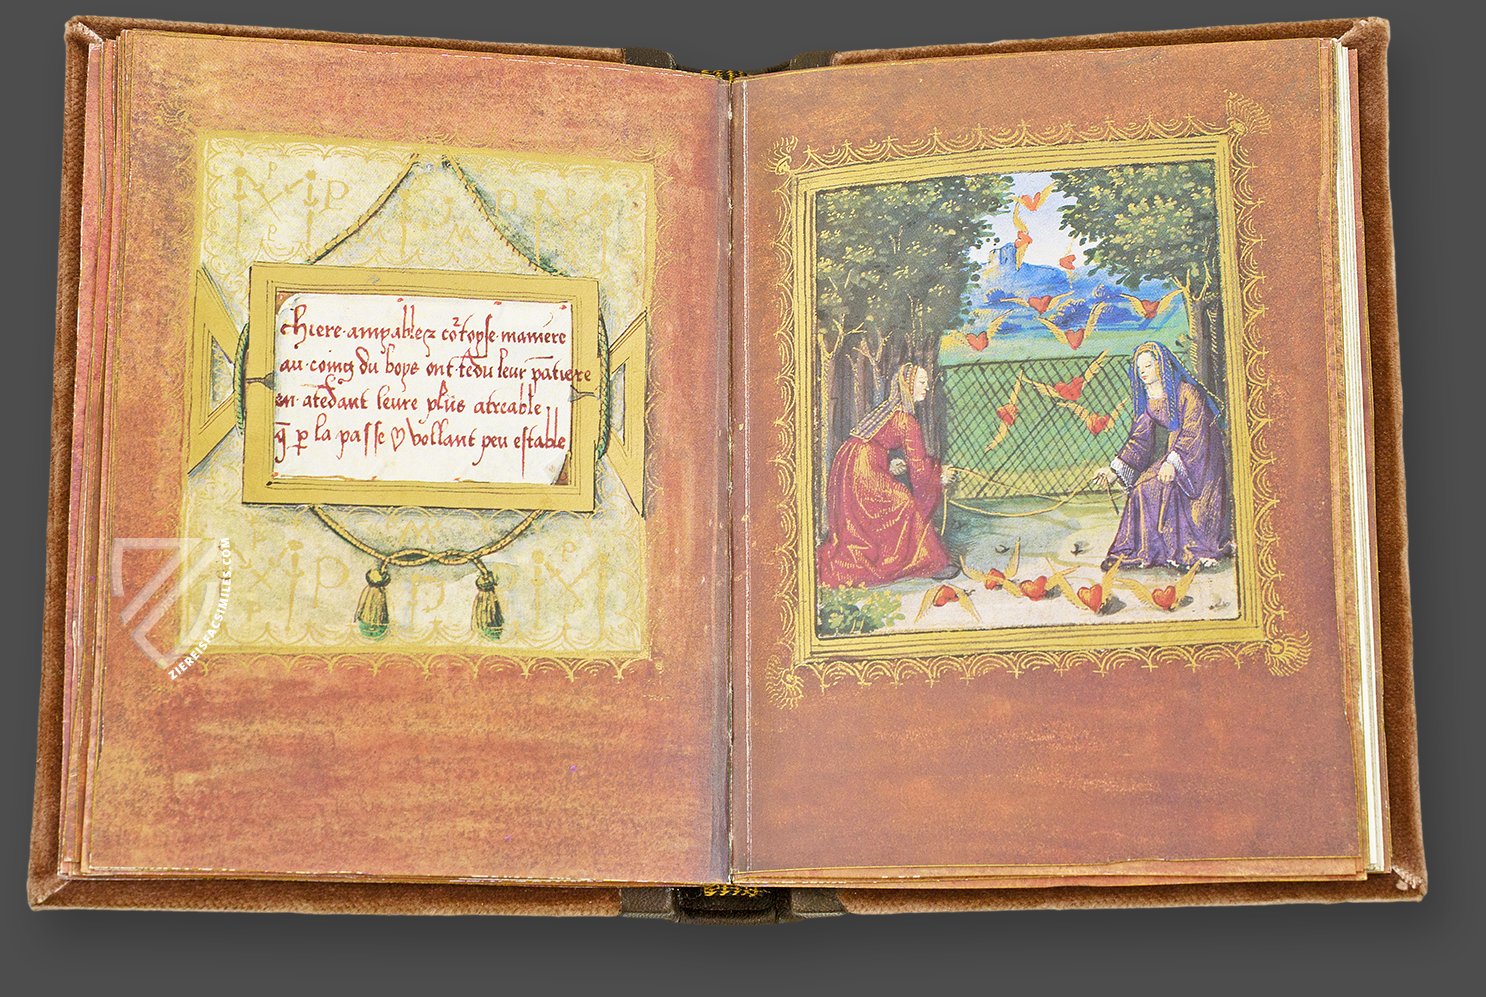 chiere · ampablez cōtopse · maniere
au · coing du boys ont · tēdu leur pātiere
en · atēdant leure plus atreable
q̄ ꝑ la passe ♡ vollant peu estable
ZIEREISFACSIMILES.COM